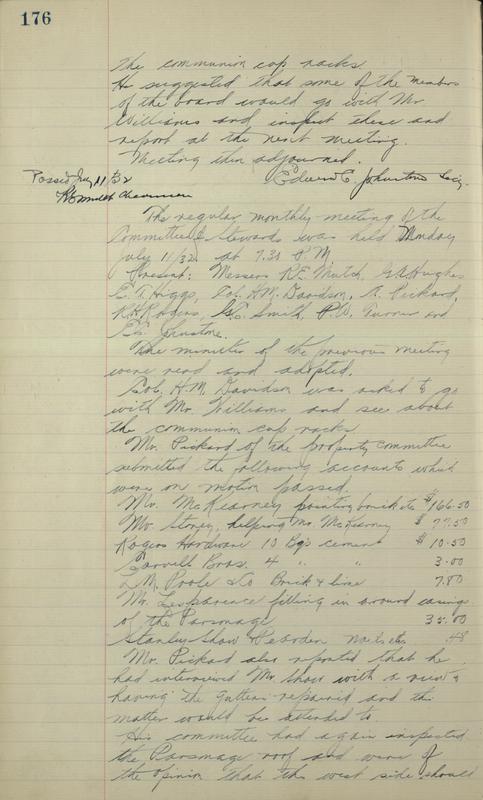 176
the communion cup racks.
He suggested that some of the members
of the board would go with Mr.
Williams and inspect these and
report at the next meeting.
Meeting then adjourned.
Edward E. Johnstone Secy.
Passed July 11/32
Chairman
The regular monthly meeting of the
Committee of Stewards was held Monday
July 11/32 at 7.30 P.M.
Present: Messers R.E. Mutch, Hughes
E.T. Higgs, Col. H.M. Davidson, A. Pickard,
R.H. Rogers, Smith, P.W. Turner and
E.E. Johnstone.
The minutes of the previous meeting
were read and adopted.
Col. H.M. Davidson was asked to go
with Mr. Williams and see about
the communion cup racks.
Mr. Pickard of the property committee
submitted the following accounts which
were on motion passed.
Mr. McKearney pointing brick etc $166.50
Mr. Storey, helping Mr. McKearney $ 77.50
Rogers Hardware 10 Bgs cement $ 10.50
Carvell Bros. 4 " " 3.00
L.M. Poole & Co Brick & lime 7.80
Mr. filling in around casings
of the Parsonage 35.00
Stanley Shaw & Pearden nails etc .48
Mr. Pickard also reported that he
had interviewed Mr. Shaw with a view to
having the gutters repaired and the
matter would be attended to.
His committee had again inspected
the Parsonage roof and were of
the opinion that the west side should